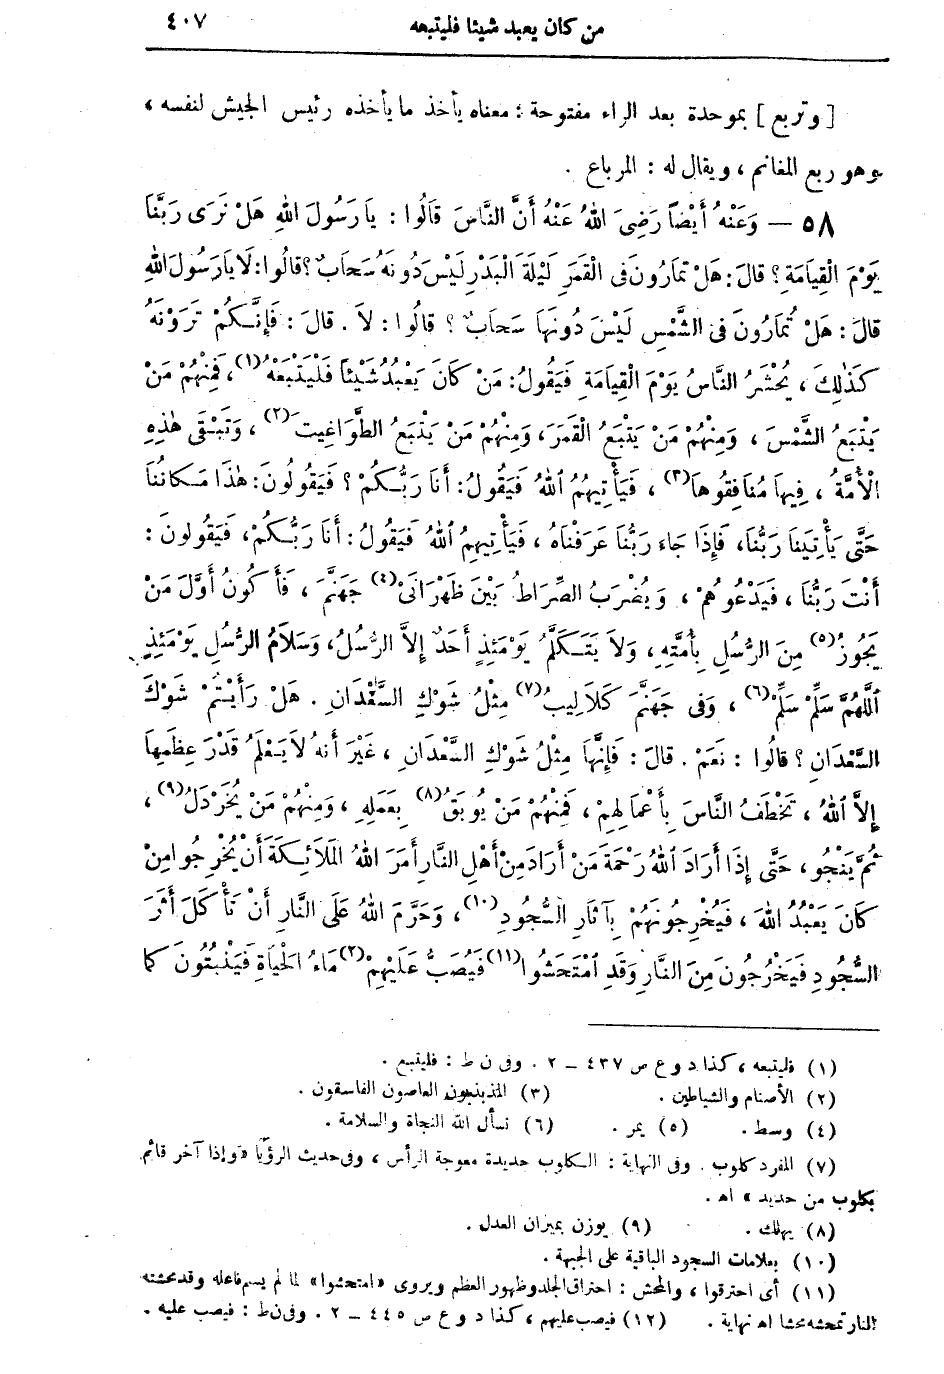 من كان يعبد شيئا فليتبعه ٤٠٧
[وتربع] بموحدة بعد الراء مفتوحة : معناه يأخذ ما يأخذه رئيس الجيش لنفسه ،
وهو ربع المغانم ، ويقال له : المرباع .
٥٨ — وَعَنْهُ أَيْضاً رَضِيَ اللهُ عَنْهُ أَنَّ النَّاسَ قَالُوا : يَا رَسُولَ اللهِ هَلْ نَرَى رَبَّنَا
يَوْمَ الْقِيَامَةِ ؟ قالَ : هَلْ تمَارُونَ فى الْقَمَرِ لَيْلَةَ الْبَدْرِ لَيْسَ دُونَهُ سَحَابٌ ؟ قالُوا : لَا يَارَسُولَ اللهِ
قالَ : هَلْ تُمَارُونَ فى الشَّمْسِ لَيْسَ دُونَهَا سَحَابٌ ؟ قالُوا : لاَ . قالَ : فَإِنَّكُمْ تَرَوْنَهُ
كَذٰلِكَ ، يُحْشَرُ النَّاسُ يَوْمَ الْقِيَامَةِ فَيَقُولُ : مَنْ كَانَ يَعْبُدُ شَيْئاً فَلْيَتْبَعْهُ(١) ، فَمِنْهُمْ مَنْ
يَتْبَعُ الشَّمْسَ ، وَمِنْهُمْ مَنْ يَتْبَعُ الْقَمَرَ ، وَمِنْهُمْ مَنْ يَتْبَعُ الطَّوَاغِيتَ(٢) ، وَتَبْقَى هٰذِهِ
الْأُمَّةُ ، فِيهَا مُنَافِقُوهَا(٣) ، فَيَأْتِيهُمُ اللهُ فَيَقُولُ : أَنَا رَبُّكُمْ ؟ فَيَقُولُونَ : هٰذَا مَكَانُنَا
حَتَّى يَأْتِيَنَا رَبُّنَا ، فَإِذَا جَاءَ رَبُّنَا عَرَفْنَاهُ ، فَيَأْتِيهِمُ اللهُ فَيَقُولُ : أَنَا رَبُّكُمْ ، فَيَقُولُونَ :
أَنْتَ رَبُّنَا ، فَيَدْعُوهُمْ ، وَيُضْرَبُ الصِّرَاطُ بَيْنَ ظَهْرَانَىْ(٤) جَهَنَّمَ ، فَأَكُونُ أَوَّلَ مَنْ
يَجُوزُ(٥) مِنَ الرُّسُلِ بِأُمَّتِهِ ، وَلاَ يَتَكَلَّمُ يَوْمَئِذٍ أَحَدٌ إِلاَّ الرُّسُلُ ، وَسَلاَمُ الرُّسُلِ يَوْمَئِذٍ
اللَّهُمَّ سَلِّمْ سَلِّمْ(٦) ، وَفى جَهَنَّمَ كَلَالِيبُ(٧) مِثْلُ شَوْكِ السَّعْدَانِ . هَلْ رَأَيْتُمْ شَوْكَ
السَّعْدَانِ ؟ قالُوا : نَعَمْ . قالَ : فَإِنَّهَا مِثْلُ شَوْكِ السَّعْدَانِ ، غَيْرَ أَنهُ لَا يَعْلَمُ قَدْرَ عِظَمِهَا
إِلاَّ اللهُ ، تَخْطَفُ النَّاسَ بِأَعْمَالِهِمْ ، فَمِنْهُمْ مَنْ يُوبَقُ(٨) بِعَمَلِهِ ، وَمِنْهُمْ مَنْ يُخَرْدَلُ(٩) ،
ثُمَّ يَنْجُو ، حَتَّى إِذَا أَرَادَ اللهُ رَحْمَةَ مَنْ أَرَادَ مِنْ أَهْلِ النَّارِ أَمَرَ اللهُ المَلَائِكَةَ أَنْ يُخْرِجُوا مِنْ
كَانَ يَعْبُدُ اللهَ ، فَيُخْرِجُونَهُمْ بِآثَارِ السُّجُودِ(١٠) ، وَحَرَّمَ اللهُ عَلَى النَّارِ أَنْ تَأْكُلَ أَثَرَ
السُّجُودِ فَيَخْرُجُونَ مِنَ النَّارِ وَقَدِ امْتَحَشُوا(١١) فَيُصَبُّ عَلَيْهِمْ(٢) مَاءُ الْحَيَاةِ فَيَنْبُتُونَ كَمَا
(١) فليتبعه ، كذا د و ع ص ٤٣٧ — ٢ . وفى ن ط : فليتبع .
(٢) الأصنام والشياطين . (٣) المذبذبون العاصون الفاسقون .
(٤) وسط . (٥) يمر . (٦) نسأل الله النجاة والسلامة .
(٧) المفرد كلوب . وفى النهاية : الكلوب حديدة معوجة الرأس ، وفى حديث الرؤيا «وإذا آخر قائم
بكلوب من حديد » اهـ .
(٨) يهلك . (٩) يوزن بميزان العدل .
(١٠) بعلامات السجود الباقية على الجبهة .
(١١) أى احترقوا ، والمحش : احتراق الجلد وظهور العظم ويروى «امتحشوا» لما لم يسم فاعله وقد محشته
النار تمحشه محشا اهـ نهاية . (١٢) فيصب عليهم ، كذا د و ع ص ٤٤٥ — ٢ . وفى ن ط : فيصب عليه .